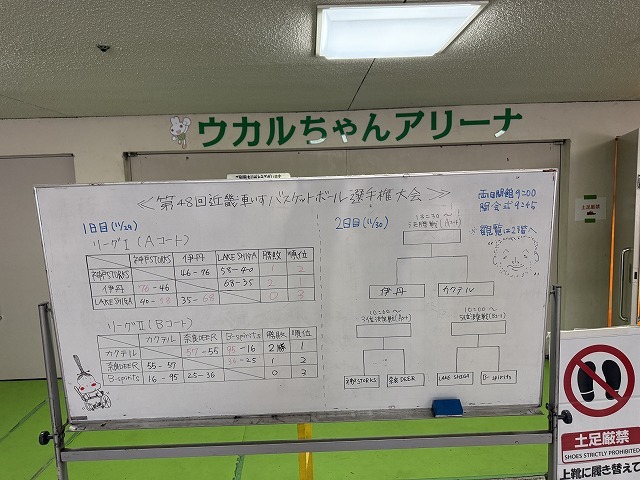 ウカルちゃんアリーナ
≪第48回近畿車いすバスケットボール選手権大会≫
1日目(11/29)
リーグⅠ(Aコート)
神戸STORKS 伊丹 LAKE SHIGA 勝敗 順位
神戸STORKS 46-76 58-40 1 2
伊丹 76-46 68-35 2
LAKE SHIGA 40-58 35-68 0 3
リーグⅡ(Bコート)
カクテル 奈良DEER B-spirits 勝敗 順位
カクテル 57-55 95-16 2勝 1
奈良DEER 55-57 36-25 1 2
B-spirits 16-95 25-36 0 3
2日目(11/30)
決勝戦(Aコート)
伊丹 カクテル
10:00〜 10:00〜
神戸STORKS 奈良DEER LAKE SHIGA B-spirits
両日開館9:00
開会式9:45
※観覧は2階へ
土足厳禁
土足厳禁
SHOES STRICTLY PROHIBITED
上靴に履き替えて